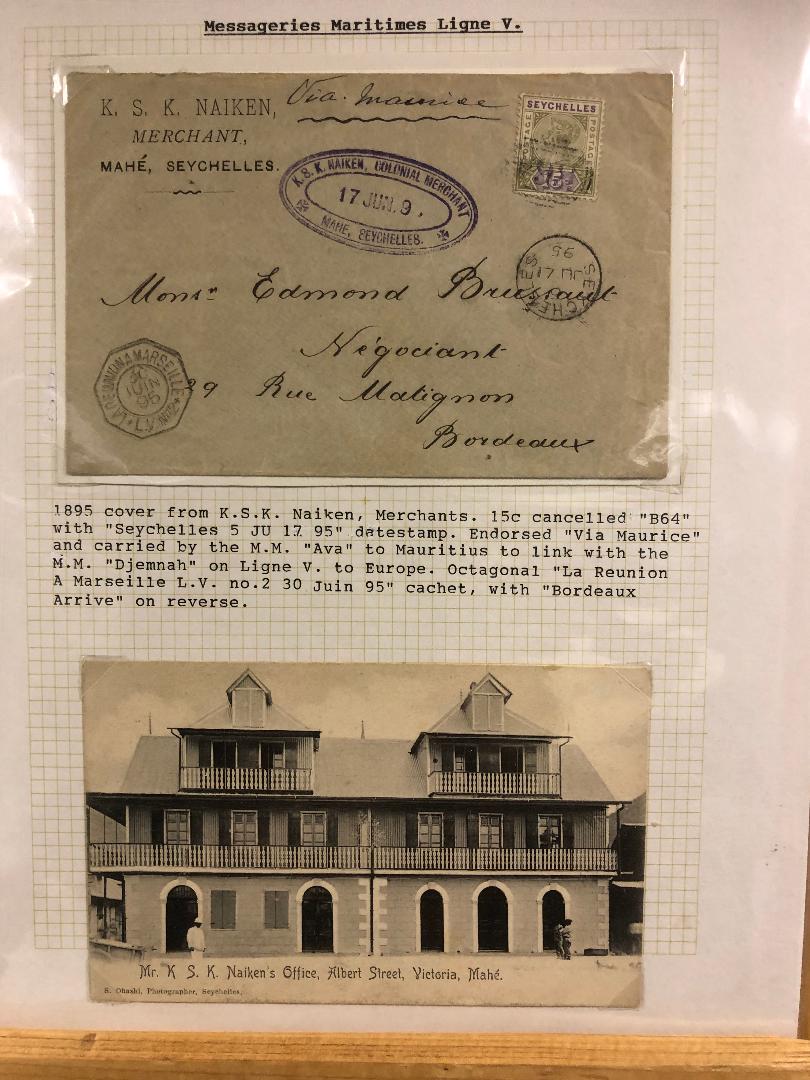 Messageries Maritimes Ligne V.
K. S. K. NAIKEN,
MERCHANT,
MAHÉ, SEYCHELLES.
Via Maurice
SEYCHELLES
POSTAGE
POSTAGE
K. S. K. NAIKEN, COLONIAL MERCHANT
17 JUN. 9 .
MAHE, SEYCHELLES.
SEYCHELLES
JU 17
95
Monsr Edmond Brussaut
Négociant
29 Rue Matignon
Bordeaux
LA REUNION A MARSEILLE
30
JUIN
95
L.V. No2
1895 cover from K.S.K. Naiken, Merchants. 15c cancelled "B64"
with "Seychelles 5 JU 17 95" datestamp. Endorsed "Via Maurice"
and carried by the M.M. "Ava" to Mauritius to link with the
M.M. "Djemnah" on Ligne V. to Europe. Octagonal "La Reunion
A Marseille L.V. no.2 30 Juin 95" cachet, with "Bordeaux
Arrive" on reverse.
Mr. K S. K. Naiken's Office, Albert Street, Victoria, Mahé.
S. Ohashi, Photographer, Seychelles.